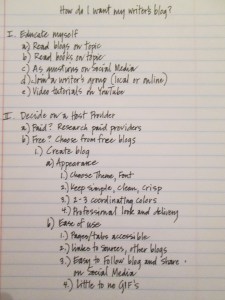 How do I want my writer's blog?
I. Educate myself
a) Read blogs on topic
b) Read books on topic
c) As questions on Social Media
d) Join a writer's group (local or online)
e) Video tutorials on YouTube
II. Decide on a Host Provider
a) Paid? Research paid providers
b) Free? Choose from free blogs
1.) Create blog
a) Appearance
1.) Choose Theme, Font
2.) Keep simple, clean, crisp
3.) 2-3 coordinating colors
4.) Professional look and delivery
b) Ease of use
1.) Pages/tabs accessible
2.) Links to sources, other blogs
3.) Easy to Follow blog and Share
on Social Media
4.) Little to no GIF's